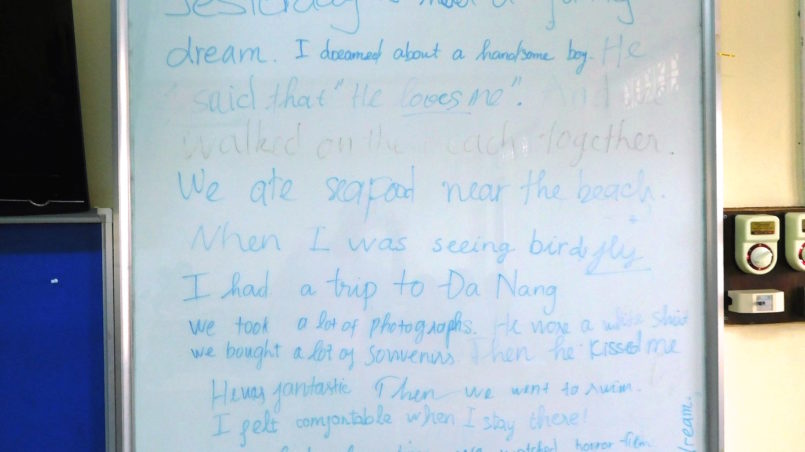 Yesterday I had a funny
dream. I dreamed about a handsome boy. He
said that "He loves me". And we
walked on the beach together.
We ate seafood near the beach.
When I was seeing birds fly
I had a trip to Da Nang
we took a lot of photographs. He wore a white shirt
we bought a lot of souvenirs. Then he kissed me
He was fantastic Then we went to swim.
I felt comfortable when I stay there!
watched horror film
dream.